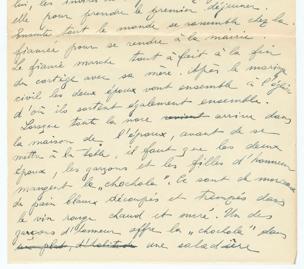 lui, les invités
elle pour prendre le premier déjeuner.
Ensuite tout le monde se rassemble chez la
fiancée pour se rendre à la mairie.
Le fiancé marche tout à fait à la fin
du cortège avec sa mère. Après le mariage
civil les deux époux vont ensemble à l'église
d'où ils sortent également ensemble.
Lorsque toute la noce arrive dans
la maison de l'époux, avant de se
mettre à table, il faut que les deux
époux, les garçons et les filles d'honneur
mangent le „chochola". Ce sont de morceaux
de pain blanc découpés et trempés dans
le vin rouge chaud et sucré. Un des
garçons d'honneur offre la „chochola" dans
un plat, d'habitude une saladière